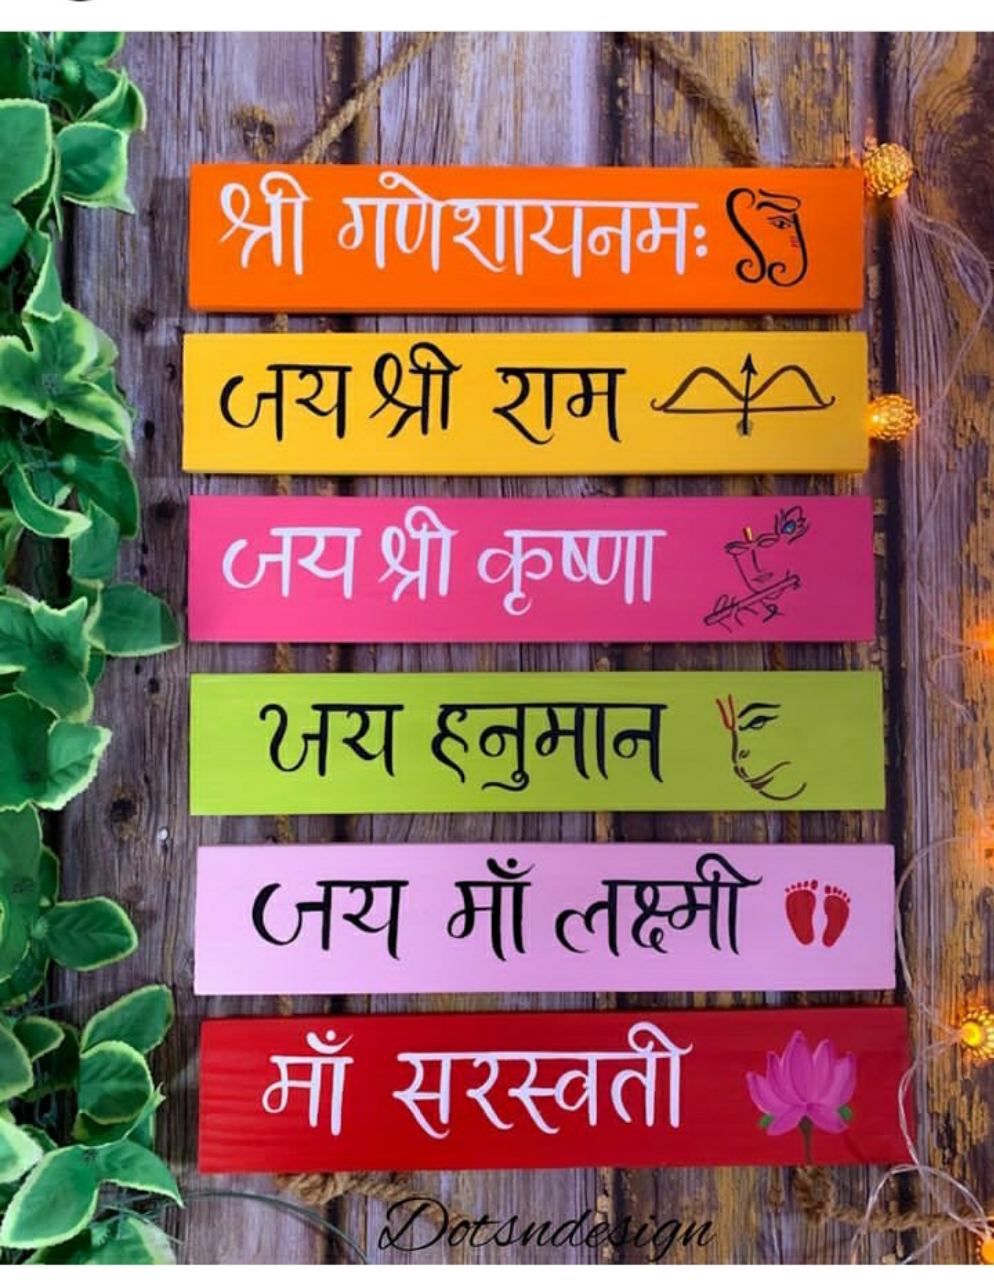 श्री गणेशायनमः
जय श्री राम
जय श्री कृष्णा
जय हनुमान
जय माँ लक्ष्मी
माँ सरस्वती
Dotsndesign